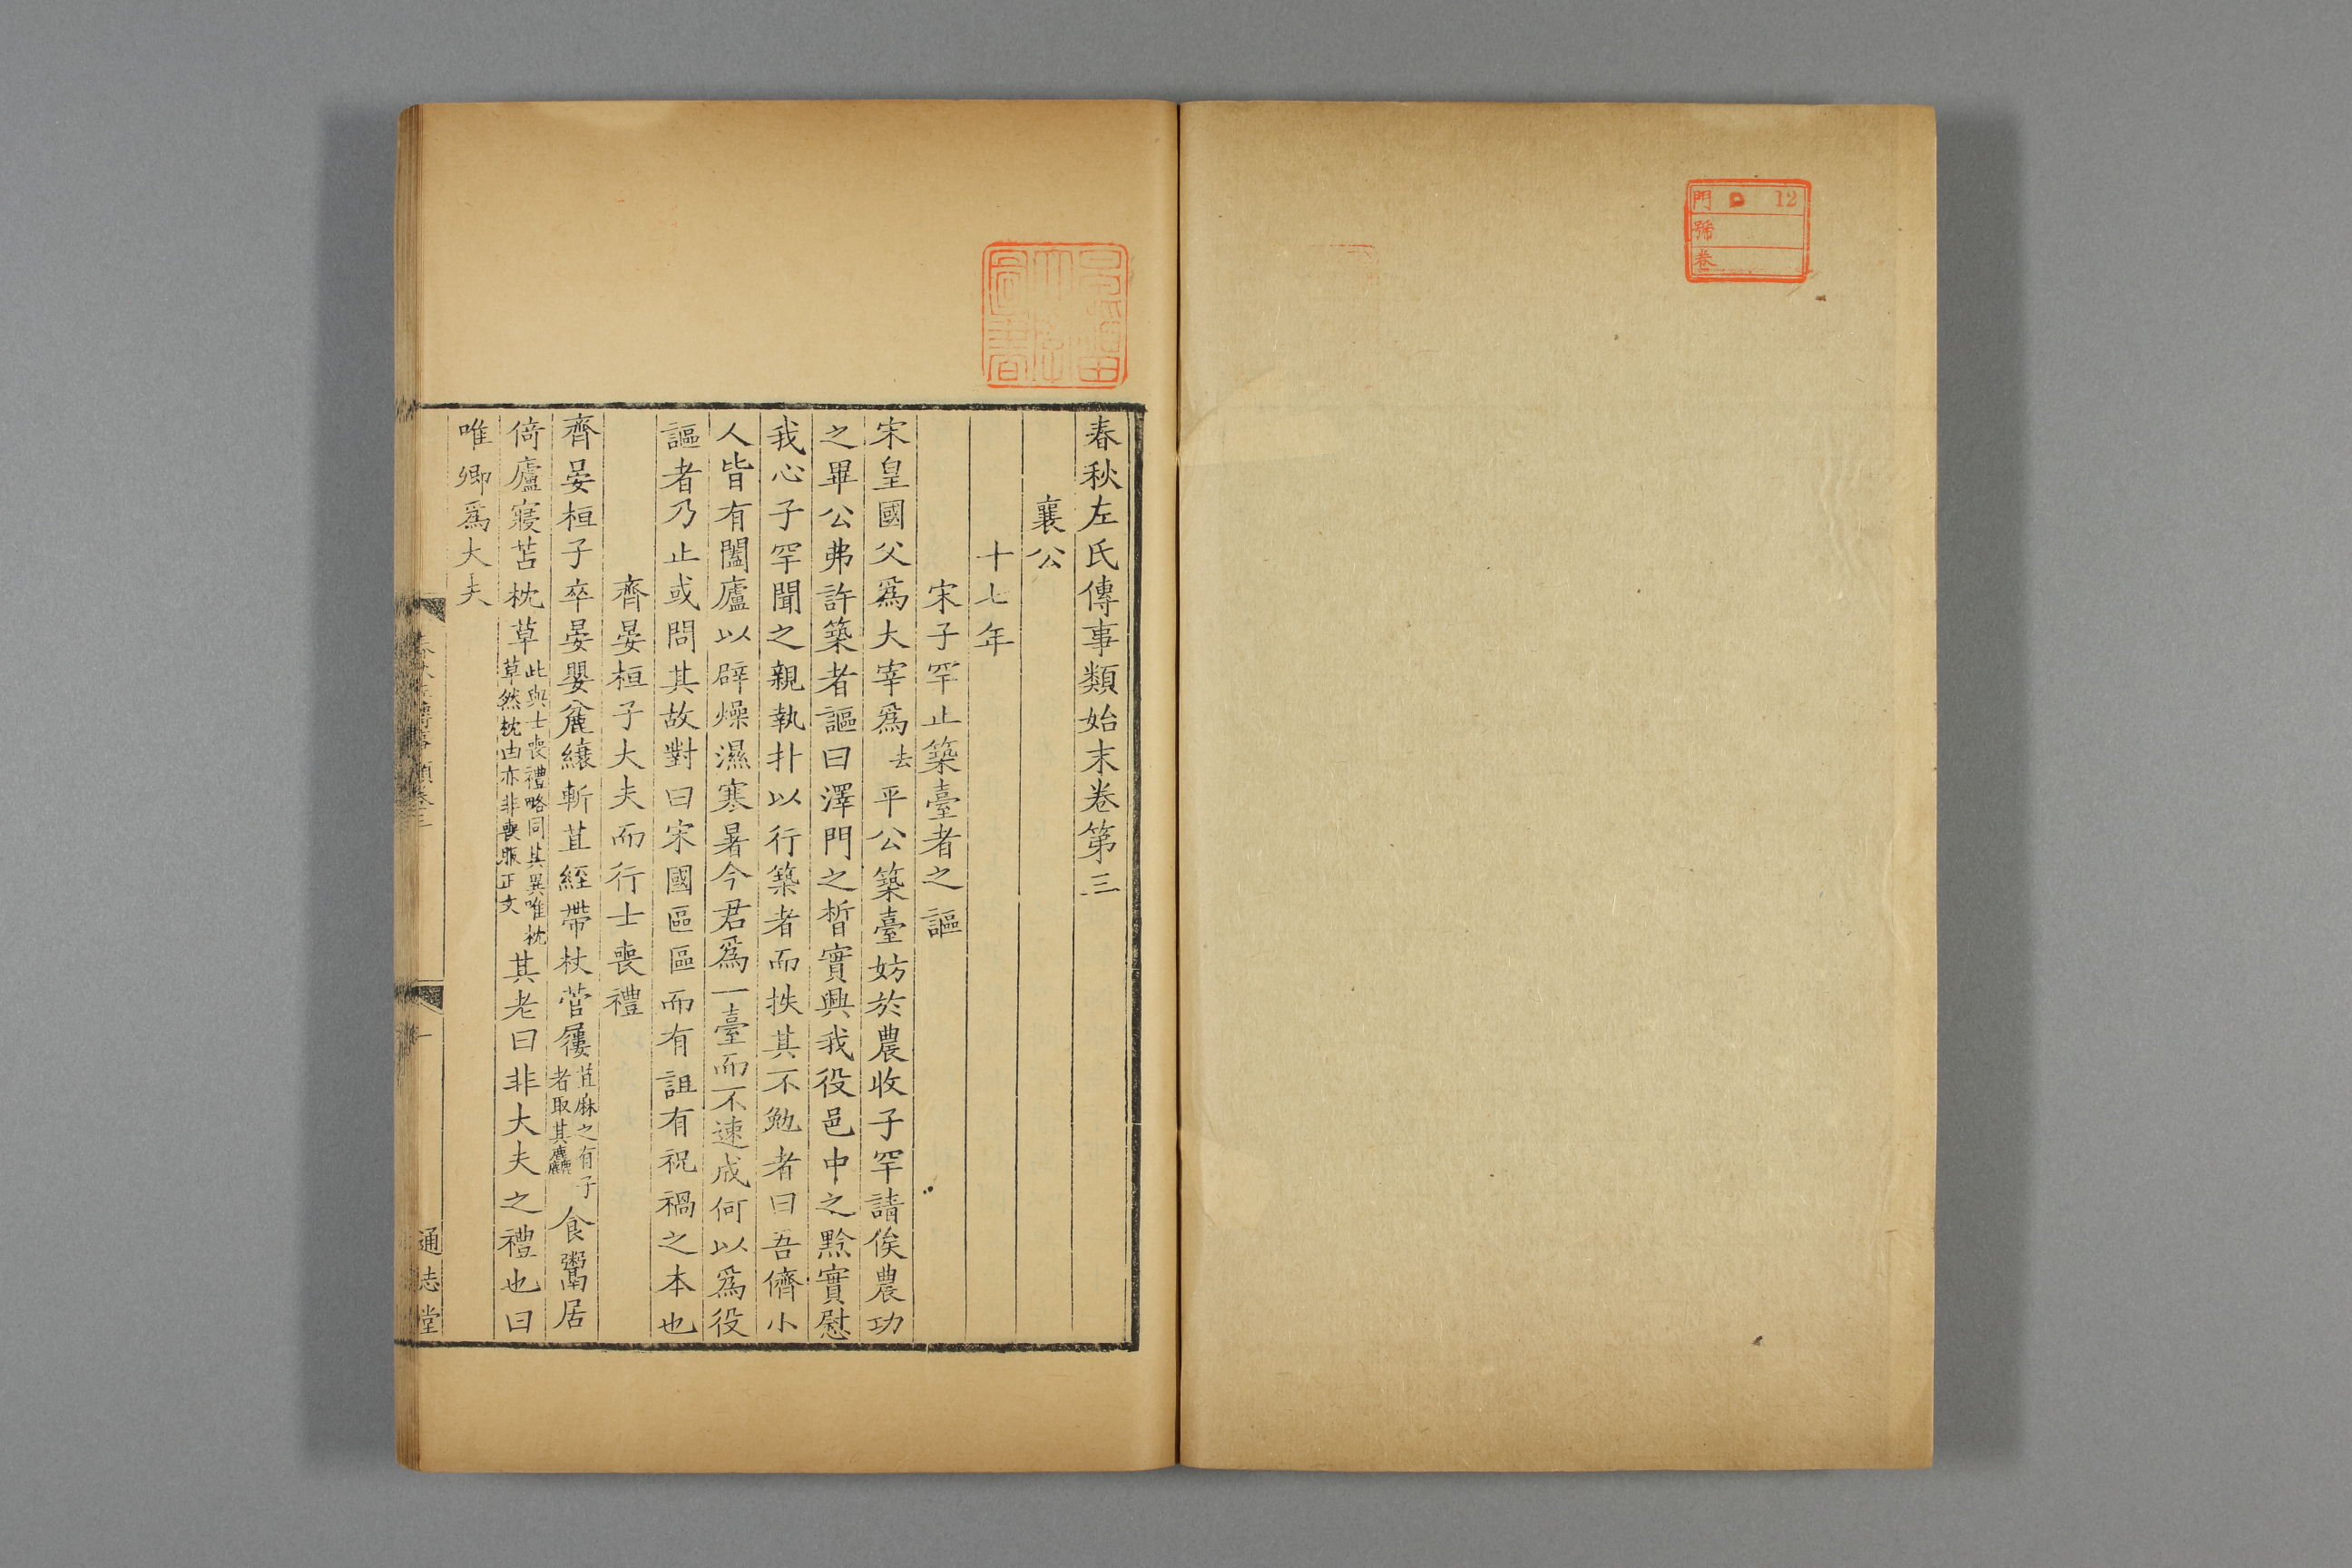 門 D 12
號
卷
早稻田大學圖書
春秋左氏傳事類始末卷第三
襄公
十七年
宋子罕止築臺者之謳
宋皇國父爲大宰爲去平公築臺妨於農收子罕請俟農功
之畢公弗許築者謳曰澤門之晳實興我役邑中之黔實慰
我心子罕聞之親執扑以行築者而抶其不勉者曰吾儕小
人皆有闔廬以辟燥濕寒暑今君爲一臺而不速成何以爲役
謳者乃止或問其故對曰宋國區區而有詛有祝禍之本也
齊晏桓子大夫而行士喪禮
齊晏桓子卒晏嬰麄縗斬苴絰帶杖菅屨苴麻之有子者取其麤食鬻居
倚廬寢苫枕草此與士喪禮略同其異唯枕草然枕凷亦非喪服正文其老曰非大夫之禮也曰
唯卿爲大夫
春秋左傳事類卷三
一
通志堂